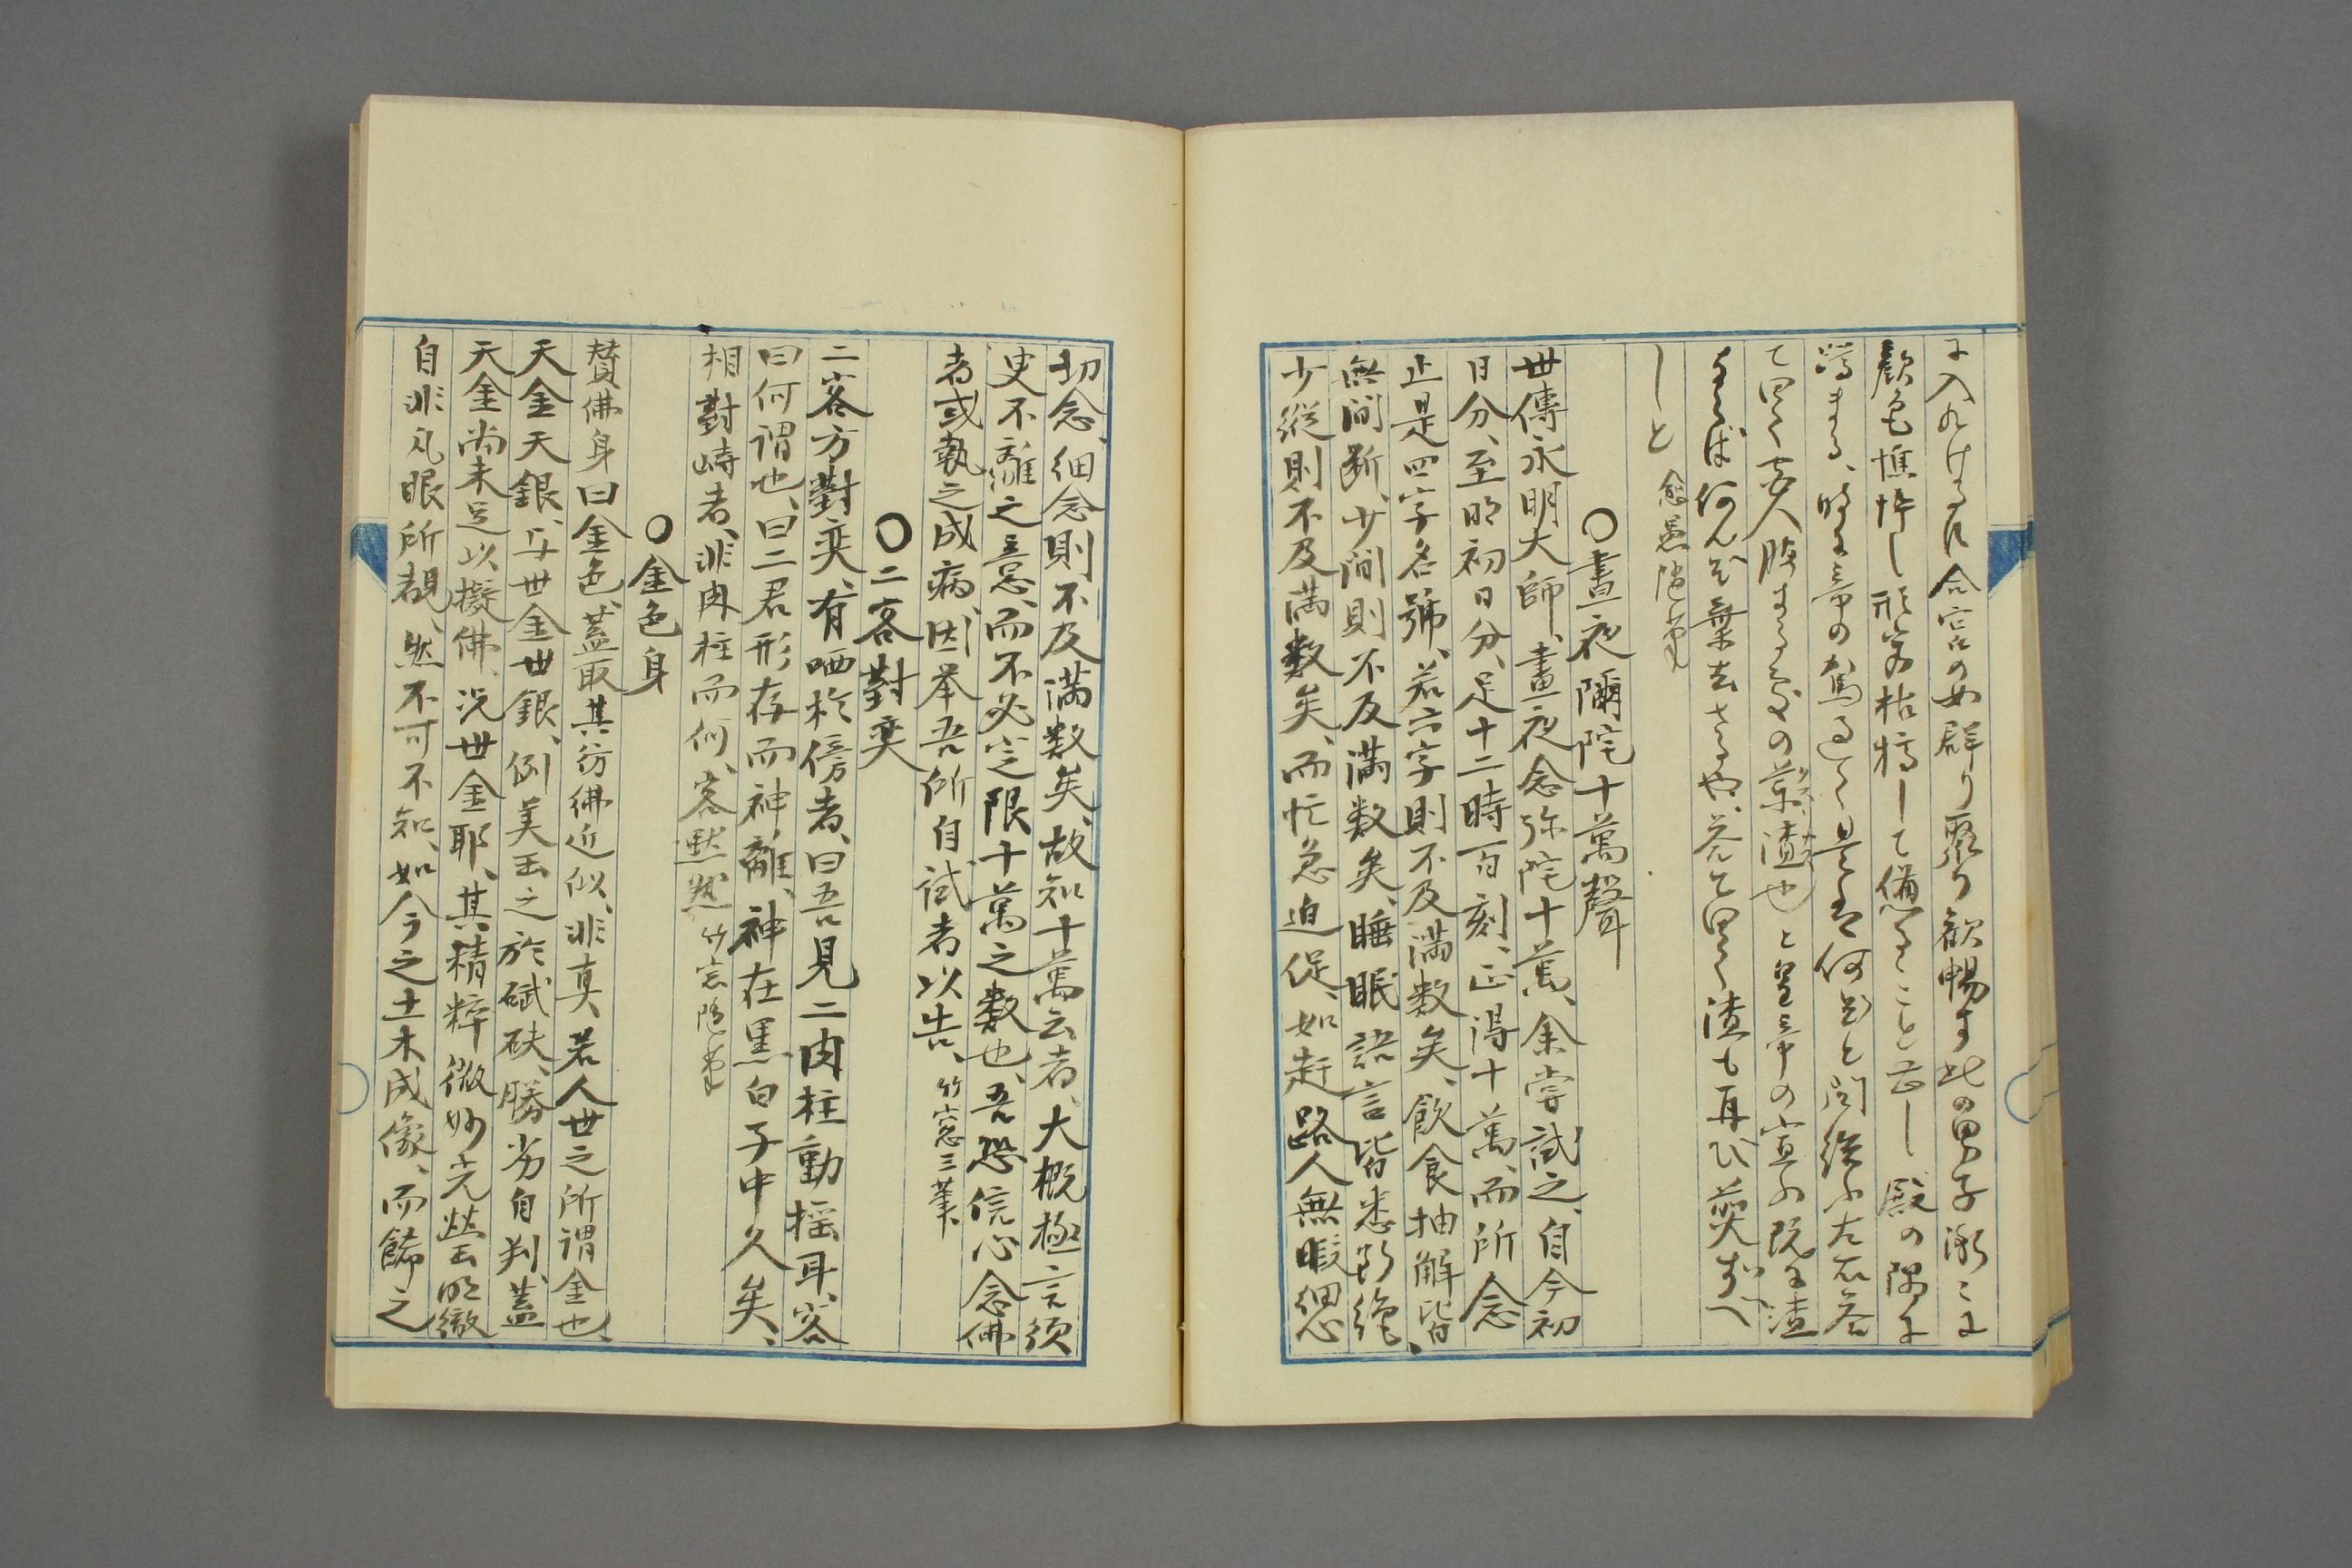 に入れける凡合宮の女群り聚り歓暢す此の男子漸々に
顔色憔悴し形容枯槁して憊ること甚し殿の隅に
時に帝の駕過て是は何ぞと問給ふ左右答
て曰く宮人等の薬渣也と皇帝の宣ふ既に渣
ならば何んぞ棄去さるや答て曰く渣も再ひ煎ずへ
しと
〇晝夜彌陀十萬聲
世傳永明大師、晝夜念弥陀十萬、余嘗試之、自今初
日分、至明初日分、足十二時百刻、正得十萬、而所念
止是四字名號、若六字則不及満数矣、飲食抽解皆、
無間断、少間則不及満数矣、睡眠語言皆悉断絶、
少縦則不及満数矣、而忙急迫促、如趕路人無暇細
切念、細念則不及満数矣、故知十萬云者、大概極言須
臾不離之意、而不必定限十萬之数也、吾恐信心念佛
者或執之成病、因挙吾所自試者以告、竹窓三筆、
〇二客對奕
二客方對奕、有哂於傍者、曰吾見二肉柱動揺耳、客
曰何謂也、曰二君形存而神離、神在黒白子中久矣、
相對峙者、非肉柱而何、客黙然 竹窓随筆
〇金色身
賛佛身曰金色、蓋取其彷彿近似、非真若人世之所謂金也、
天金天銀、与世金世銀、例美玉之於碔砆、勝劣自判、蓋
天金尚未足以擬佛、况世金耶、其精粋微妙光瑩明徹
自非凡眼所覩、然不可不知、如今之土木成像、而餙之